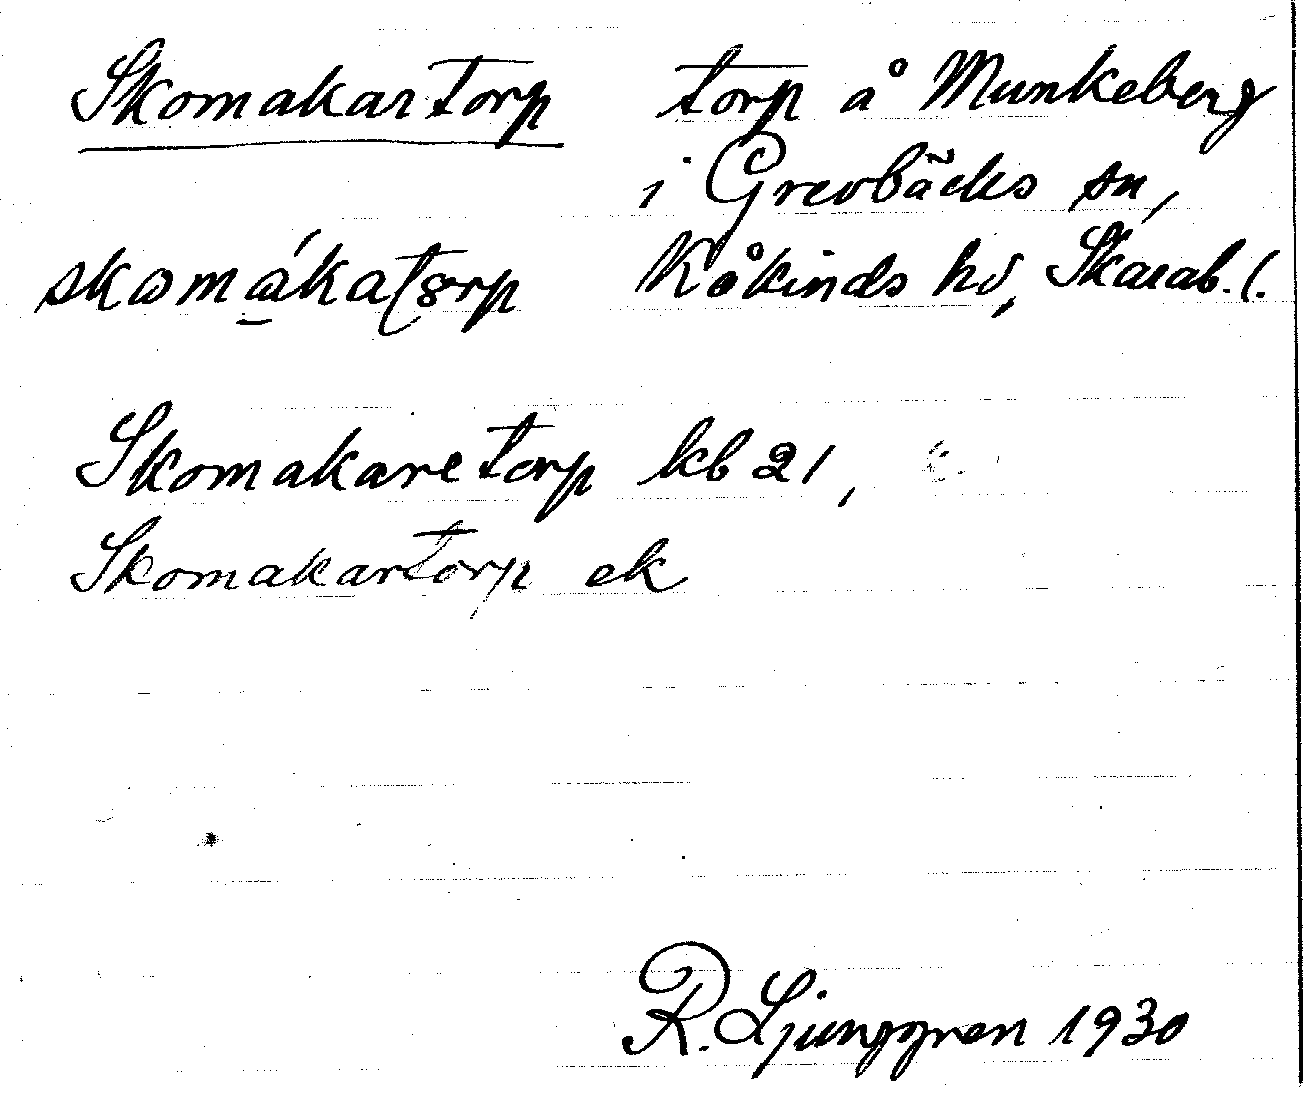 Skomakartorp torp å Munkeberg
i Grevbäcks sn,
skomákatorp Kåkinds hd, Skarab. l.
Skomakaretorp kb 21,
Skomakartorp ek
R. Ljunggren 1930